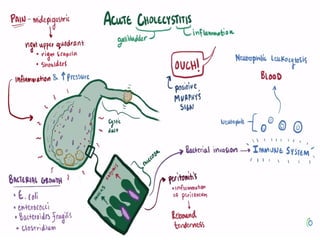 ACUTE CHOLECYSTITIS
gallbladder
inflammation
PAIN - midepigastric
right upper quadrant
• right scapula
• shoulders
Inflammation & ↑ Pressure
OUCH!
positive
MURPHY'S
SIGN
Neutrophilic Leukocytosis
BLOOD
Neutrophils
Cystic
duct
mucosa
Bacterial invasion → IMMUNE SYSTEM
peritonitis
• inflammation
of peritoneum
Rebound
tenderness
BACTERIAL GROWTH
• E. coli
• enterococci
• Bacteroides fragilis
• clostridium